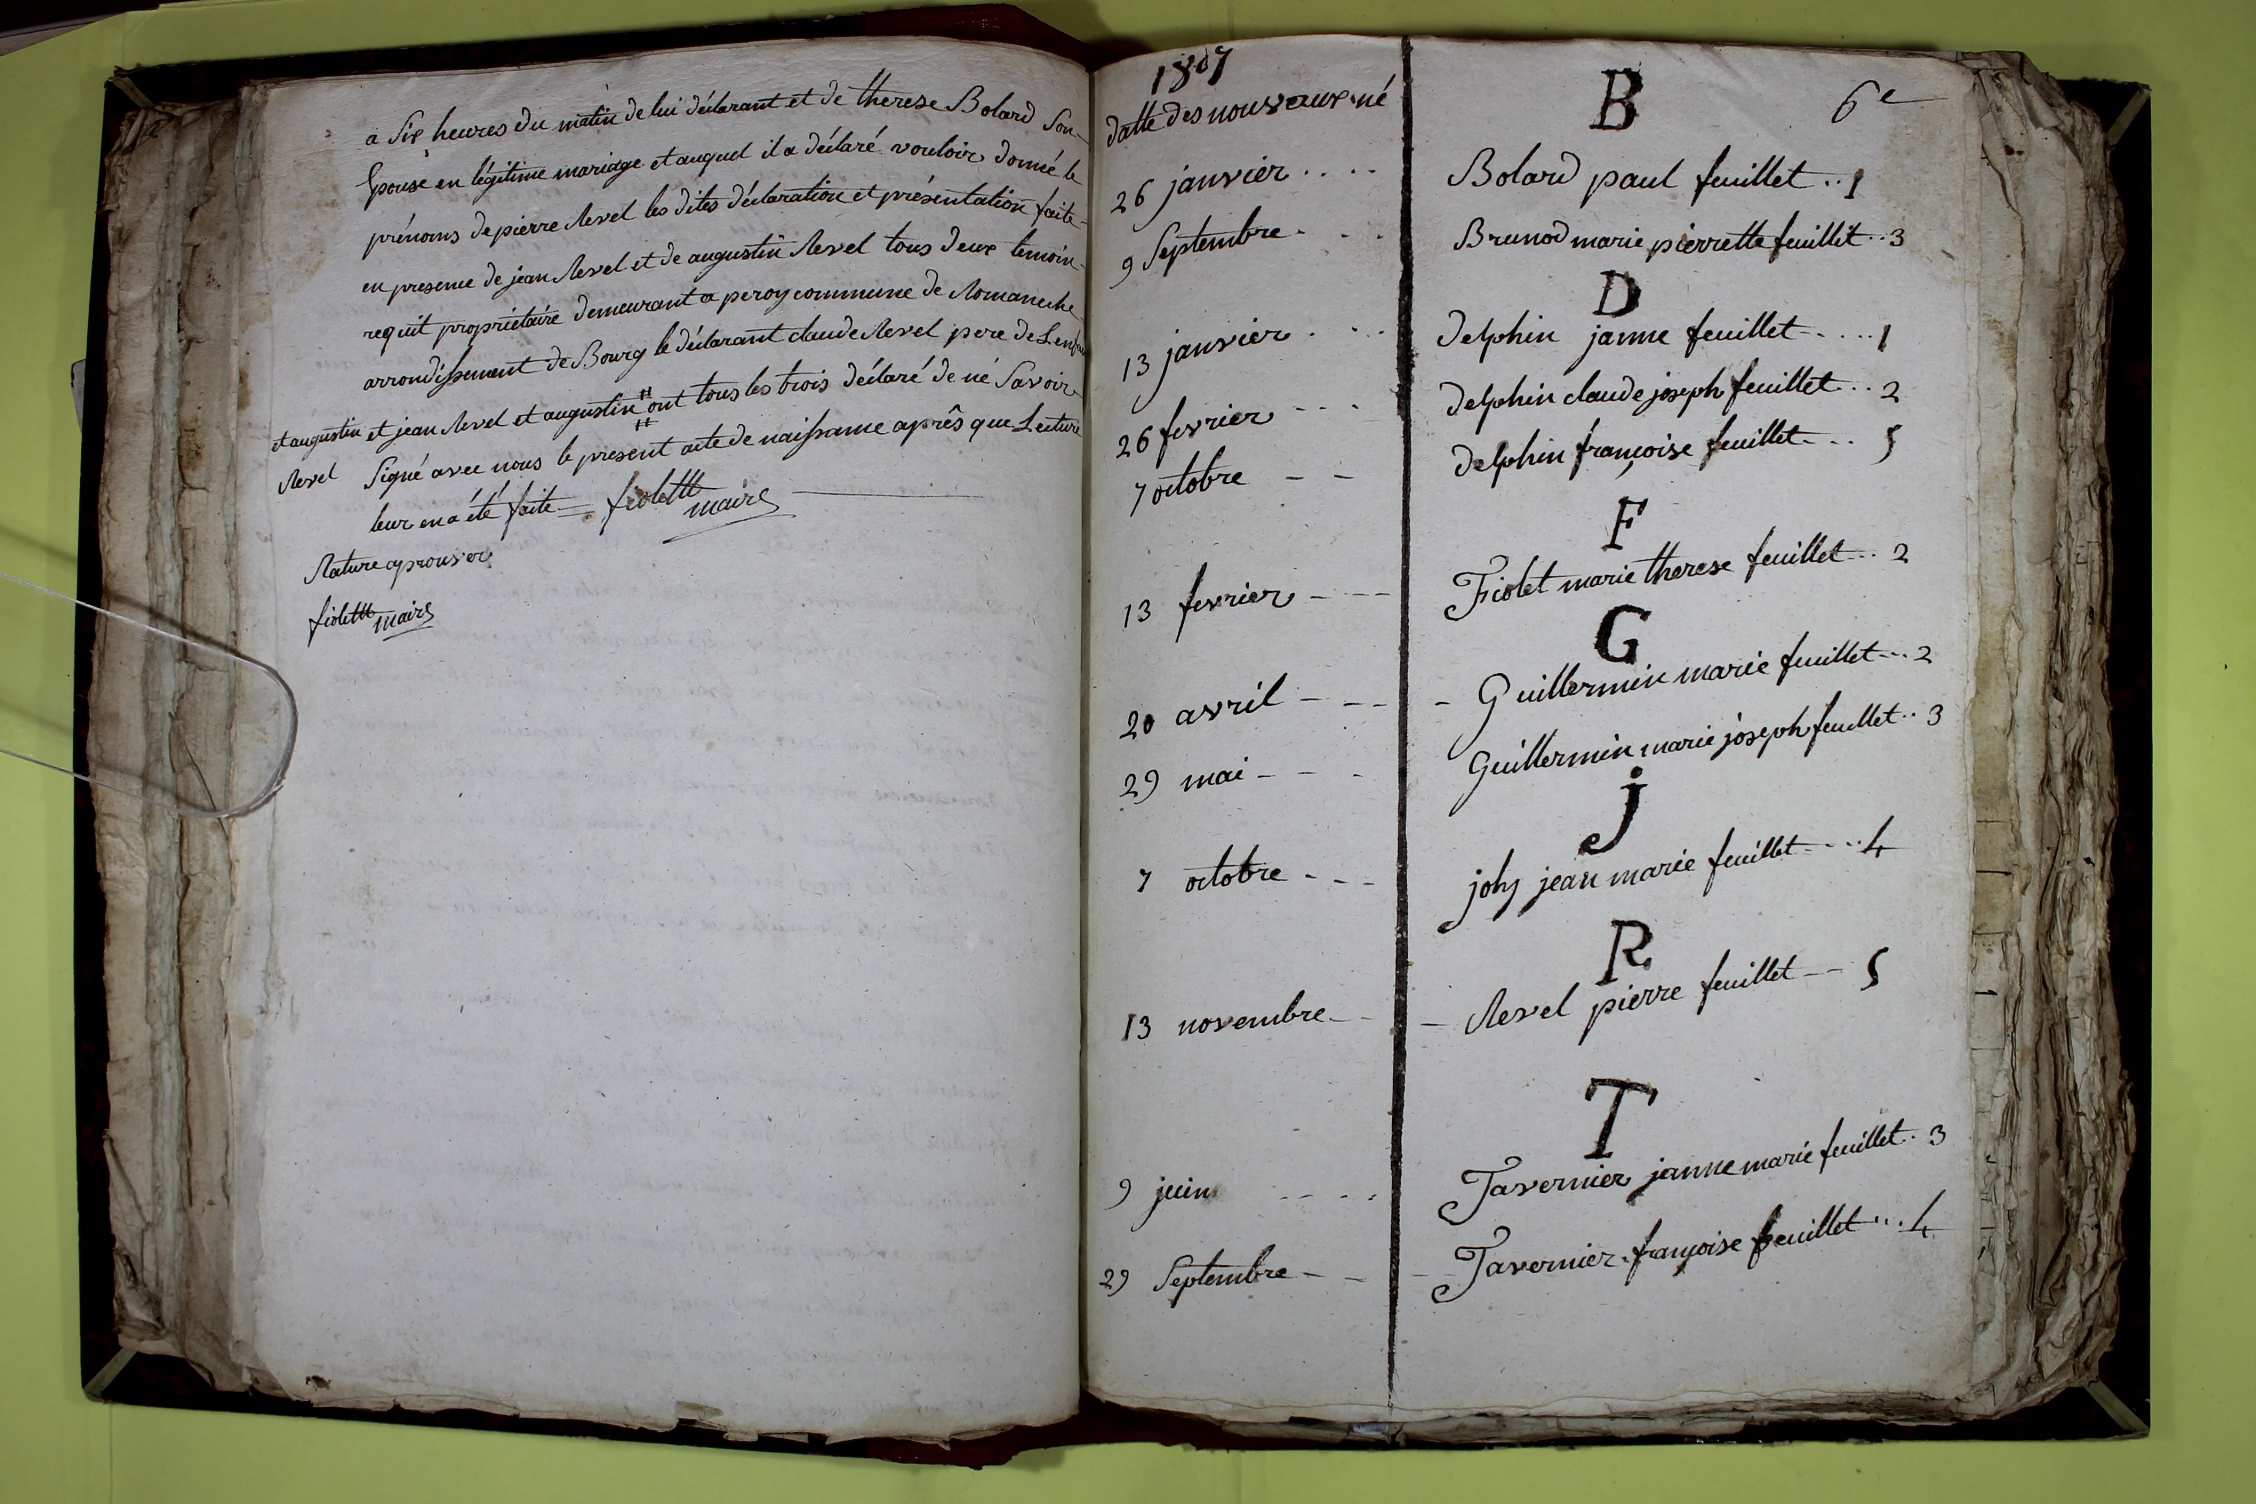 a Six heures du matin de lui déclarant et de therese Bolard Son
Epouse en légitime mariage et auquel il a déclaré vouloir donné le
prénoms de pierre Revel les dites déclaration et présentation faite
en presence de jean Revel et de augustin Revel tous deux temoin
requit propriétaire demeurant a peroy commune de Romaneche
arrondissement de Bourg le déclarant claude Revel pere de L'enfan
et jean Revel et augustin # ont tous les trois déclaré de né Savoir
et augustin
Revel
Signé avec nous le present acte de naissance après que Lecture
leur en a été faite = fiolettt maire
Rature aprouver
fiolettt maire
1807
datte des nouveaux né
B
6e
26 janvier .... Bolard paul feuillet .. 1
9 Septembre . . . Brunod marie pierrette feuillet .. 3
D
13 janvier . . . delphin janne feuillet ..... 1
26 fevrier - - - delphin claude joseph feuillet ... 2
7 octobre - - delphin françoise feuillet .... 5
F
13 fevrier - - - Fiolet marie therese feuillet ... 2
G
20 avril - - - - Guillermin marie feuillet ... 2
29 mai - - - Guillermin marie joseph feuillet .. 3
j
7 octobre - - - joly jean marie feuillet .... 4
R
13 novembre - - - Revel pierre feuillet - - 5
T
9 juin - - - - Tavernier janne marie feuillet .. 3
29 Septembre - - - Tavernier françoise feuillet ... 4